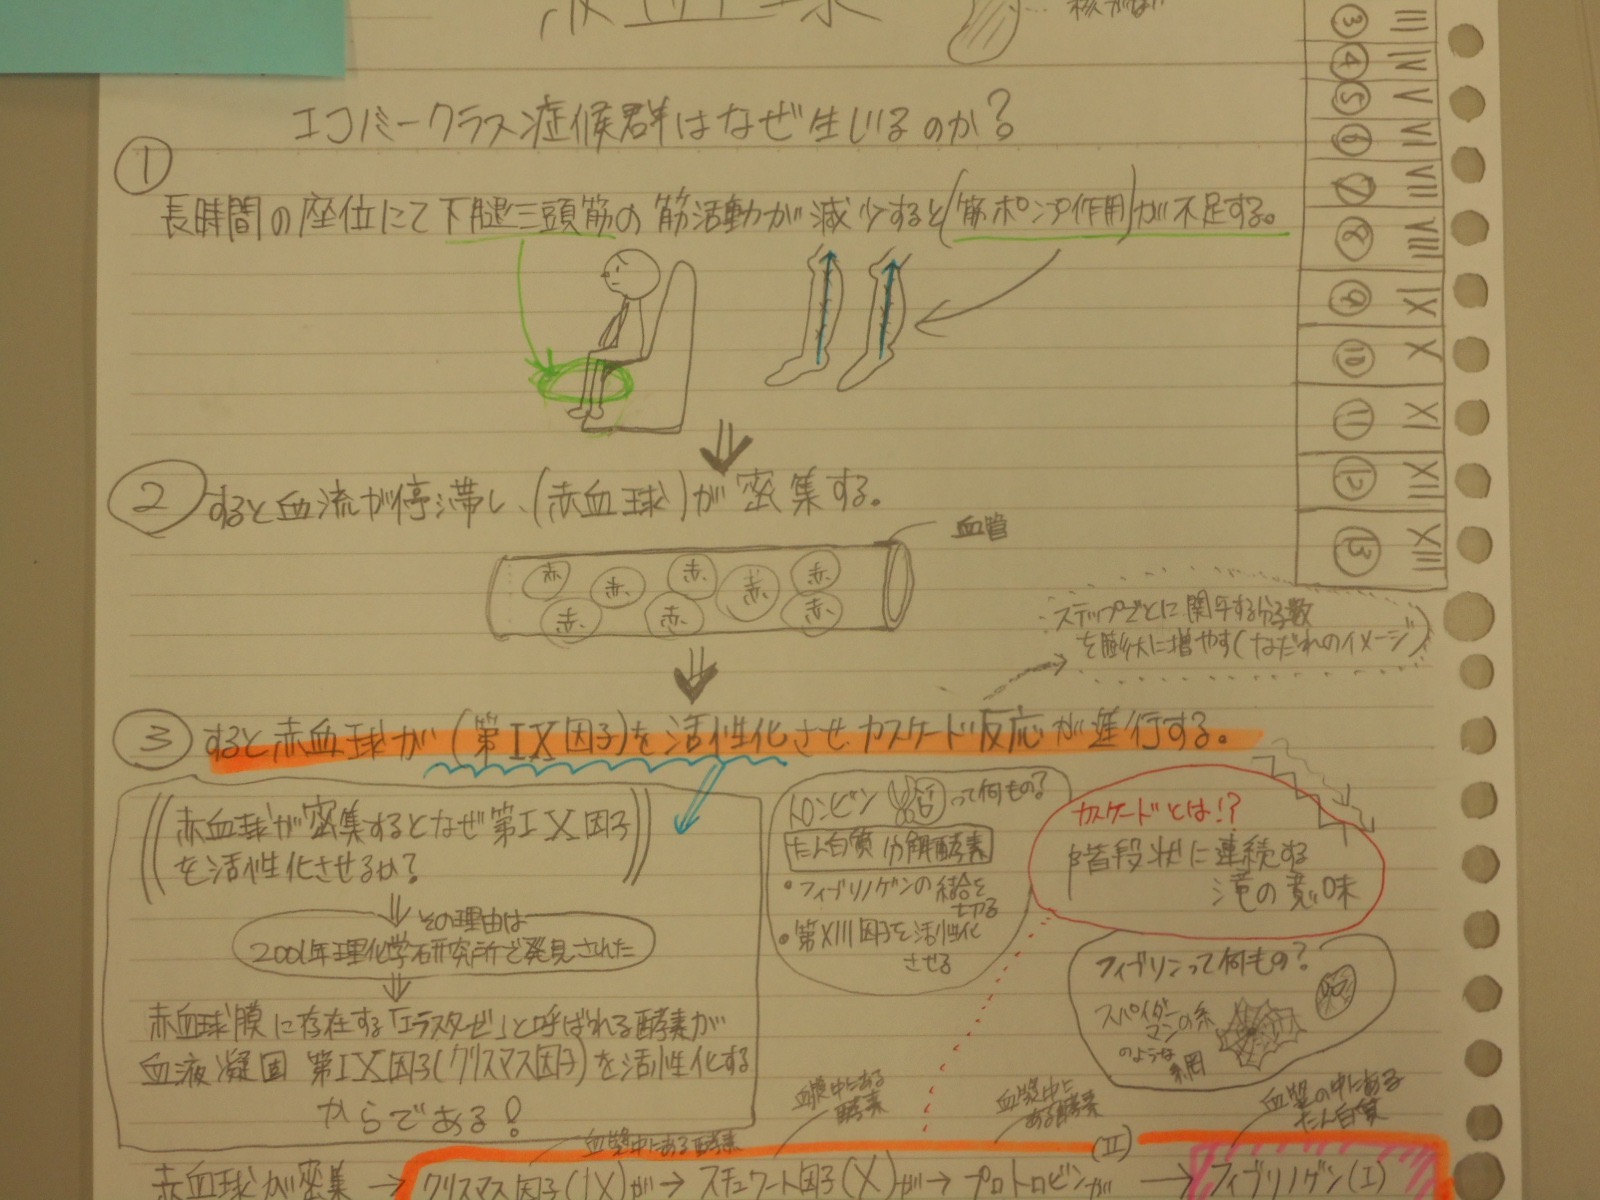 核がない
エコノミークラス症候群はなぜ生じるのか?
①
長時間の座位にて下腿三頭筋の筋活動が減少すると(筋ポンプ作用)が不足する。
②
すると血流が停滞し、(赤血球)が密集する。
血管
赤 赤 赤 赤 赤
赤 赤 赤
ステップごとに関与する分子数
を膨大に増やす(なだれのイメージ)
③ すると赤血球が(第IX因子)を活性化させカスケード反応が進行する。
赤血球が密集するとなぜ第IX因子
を活性化させるか?
その理由は
2001年理化学研究所で発見された
赤血球膜に存在する「エラスターゼ」と呼ばれる酵素が
血液凝固 第IX因子(クリスマス因子)を活性化する
からである!
トロンビン って何もの?
たん白質分解酵素
・フィブリノゲンの結合を
切る
・第XIII因子を活性化
させる
カスケードとは!?
階段状に連続する
滝の意味
フィブリンって何もの?
スパイダー
マンの糸
のような
網
血漿中にある酵素
血漿中にある
酵素
血漿中に
ある酵素
血漿の中にある
たん白質
赤血球が密集→クリスマス因子(IX)が→スチュワート因子(X)が→プロトロビンが(II)→フィブリノゲン(I)
③ III
④ IV
⑤ V
⑥ VI
⑦ VII
⑧ VIII
⑨ IX
⑩ X
⑪ XI
⑫ XII
⑬ XIII